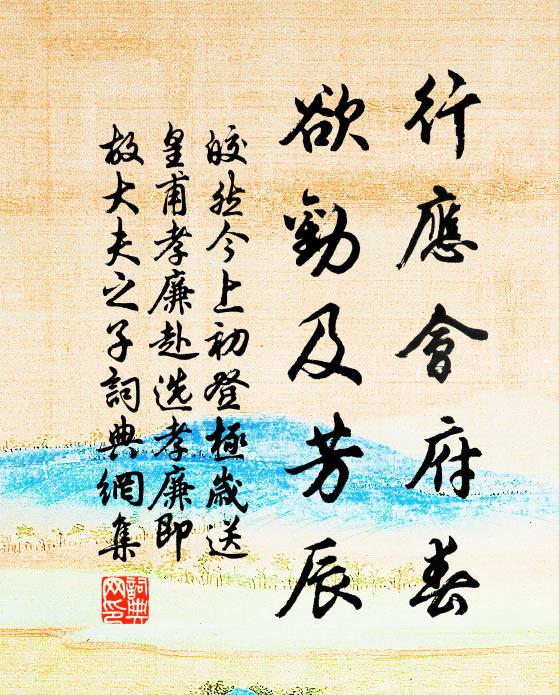 行應會府春
欲勸及芳辰
皎然今上初登極歲送
皇甫孝廉赴選孝廉即
故大夫之子詞典網集
詞典網印